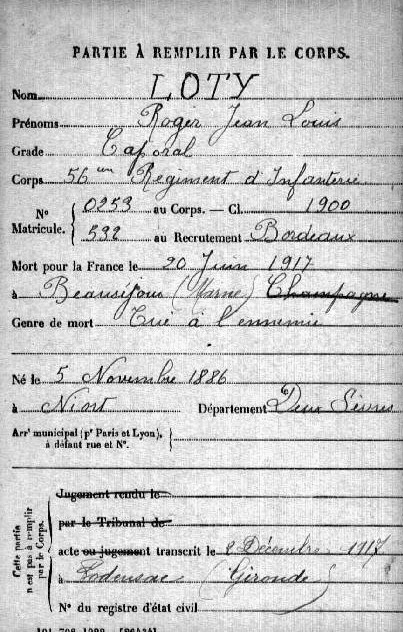 PARTIE À REMPLIR PAR LE CORPS.
Nom LOTY
Prénoms Roger Jean Louis
Grade Caporal
Corps 56em Régiment d'Infanterie
N° Matricule. 0253 au Corps. — Cl. 1900
532 au Recrutement Bordeaux
Mort pour la France le 20 Juin 1917
à Beauséjour (Marne) Champagne
Genre de mort Tué à l'ennemi
Né le 5 Novembre 1886
à Niort Département Deux Sèvres
Arrt municipal (pr Paris et Lyon), à défaut rue et N°.
Cette partie n'est pas à remplir par le Corps.
Jugement rendu le
par le Tribunal de
acte ou jugement transcrit le 2 Décembre 1917
à (Gironde)
N° du registre d'état civil